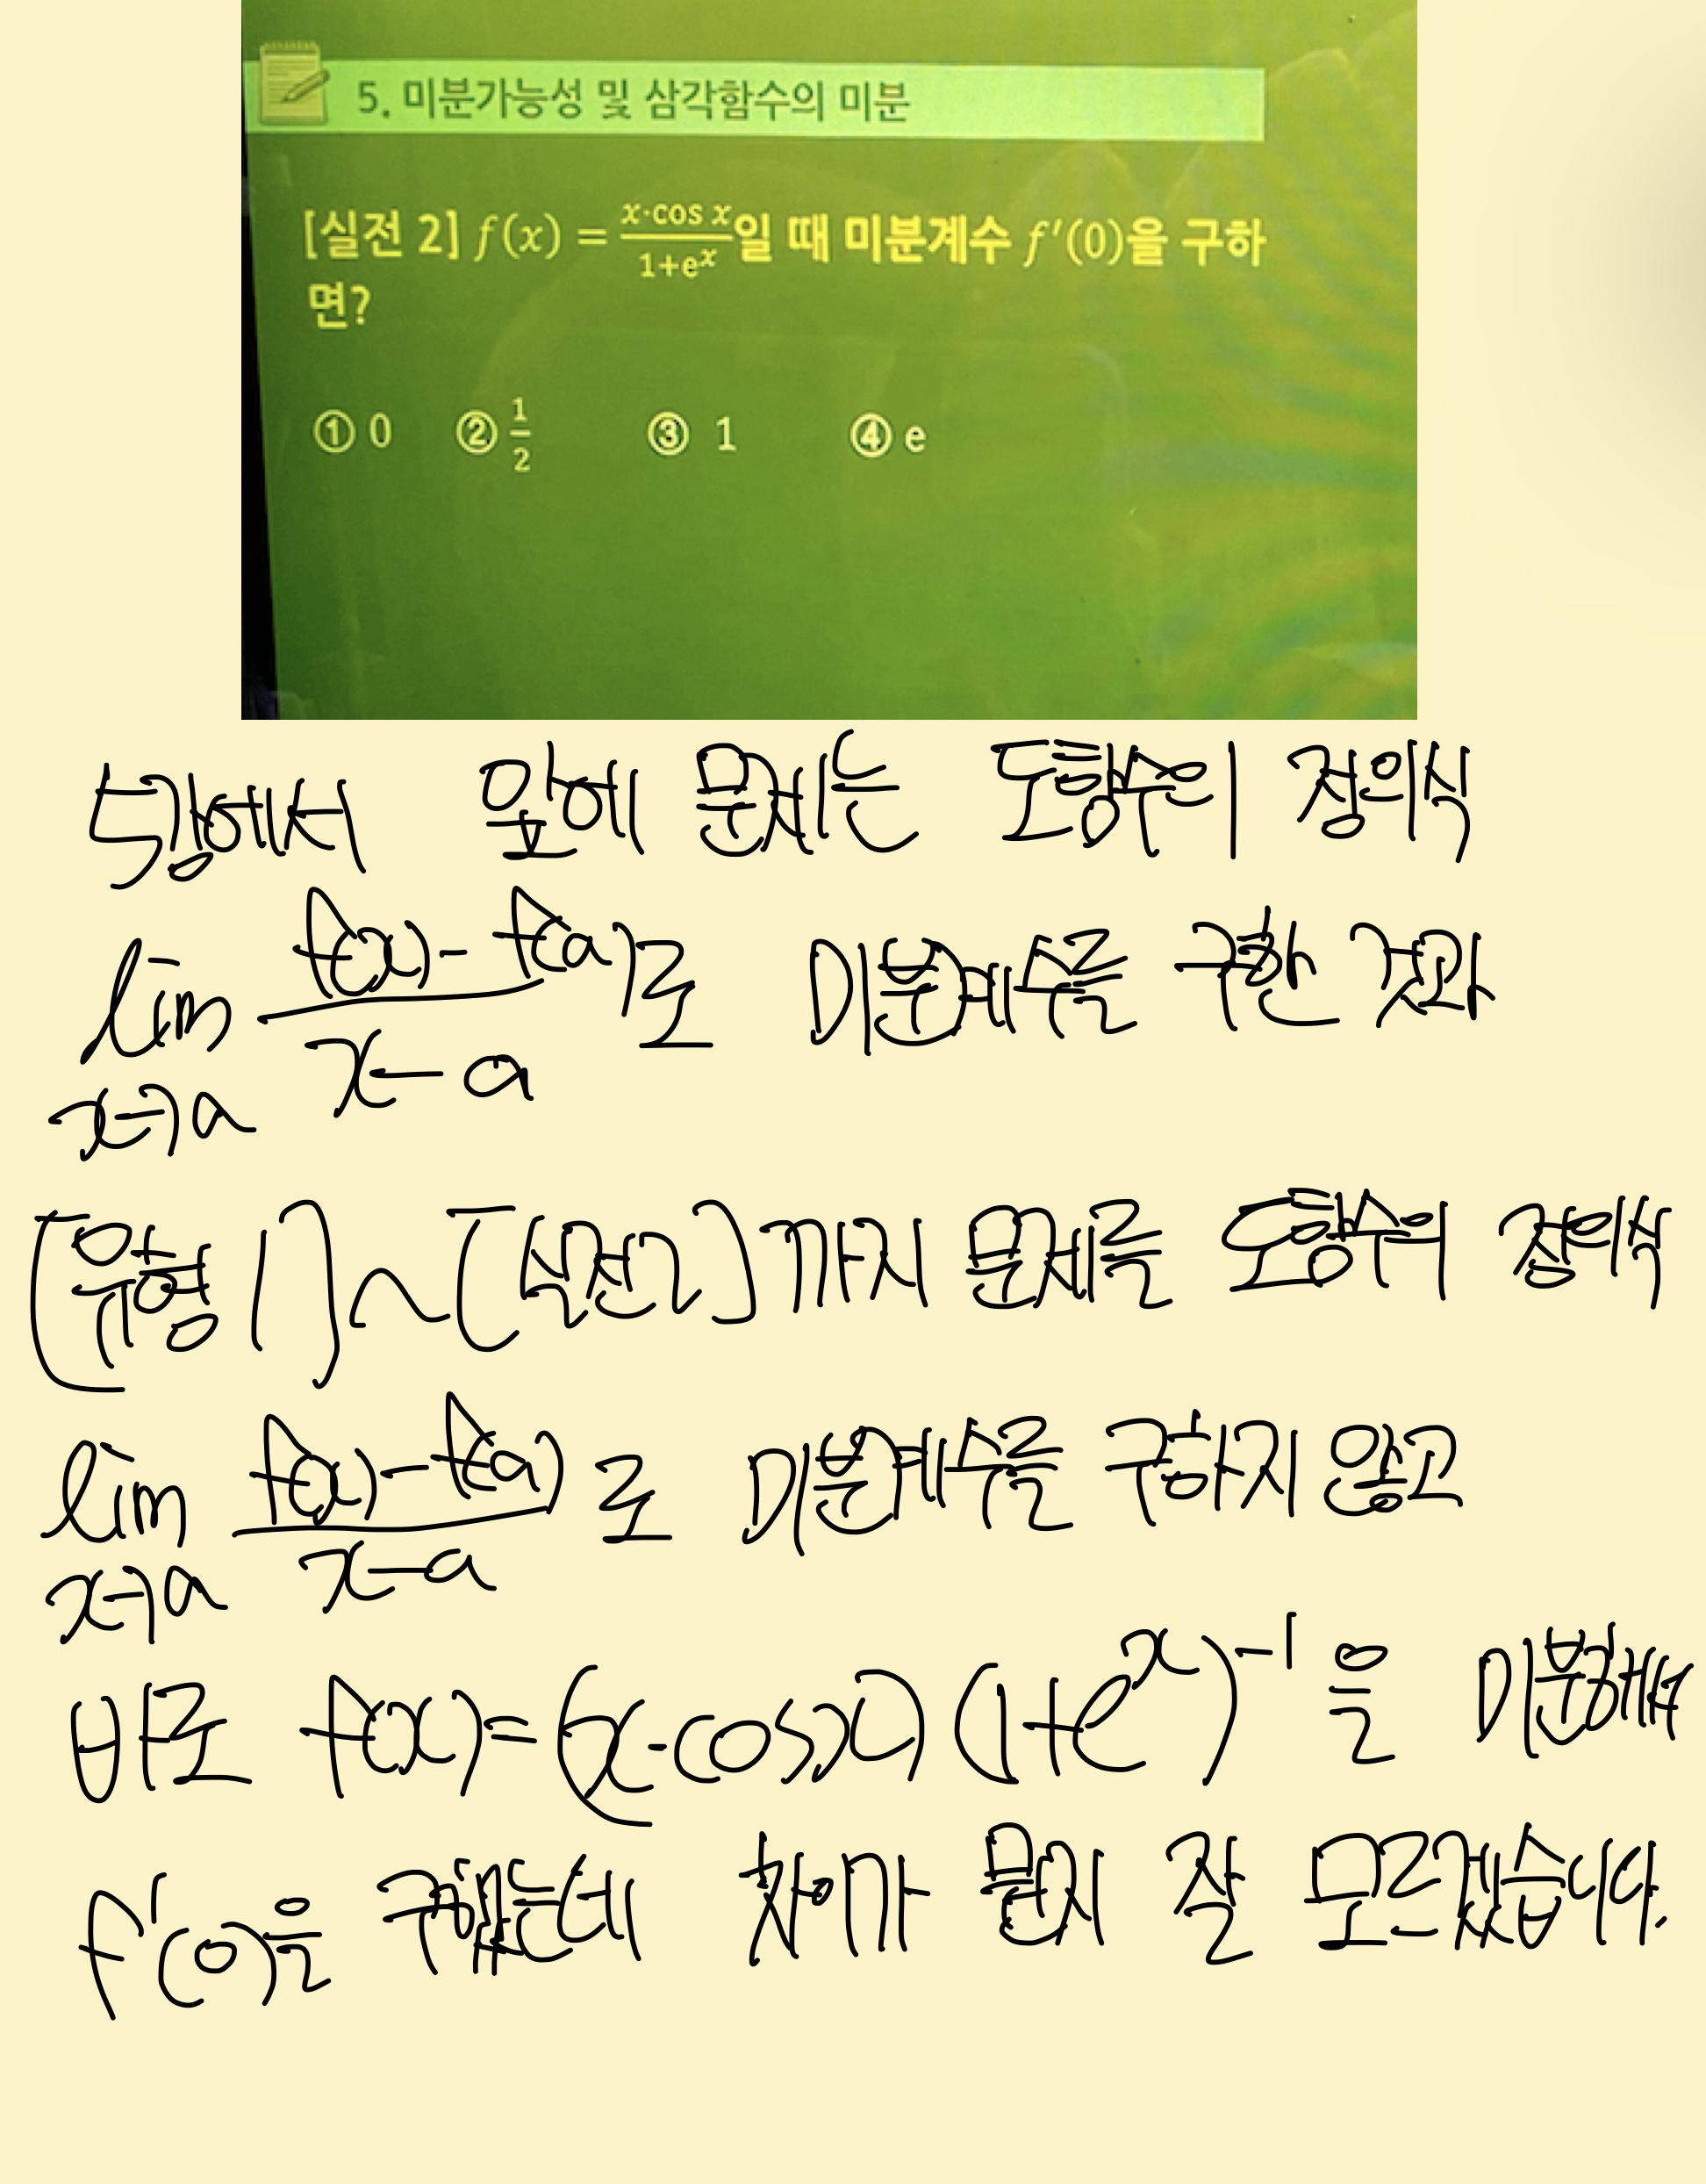 5. 미분가능성 및 삼각함수의 미분
[실전 2] f(x) = x·cos x / 1+eˣ 일 때 미분계수 f′(0)을 구하
면?
① 0 ② 1/2 ③ 1 ④ e
5강에서 앞에 문제는 도함수의 정의식
lim x→a f(x)-f(a) / x-a 로 미분계수를 구한 것과
[유형 1]~[실전2]까지 문제를 도함수의 정의식
lim x→a f(x)-f(a) / x-a 로 미분계수를 구하지 않고
바로 f(x)=(x·cosx)(1+eˣ)⁻¹을 미분해서
f'(0)을 구했는데 차이가 뭔지 잘 모르겠습니다.